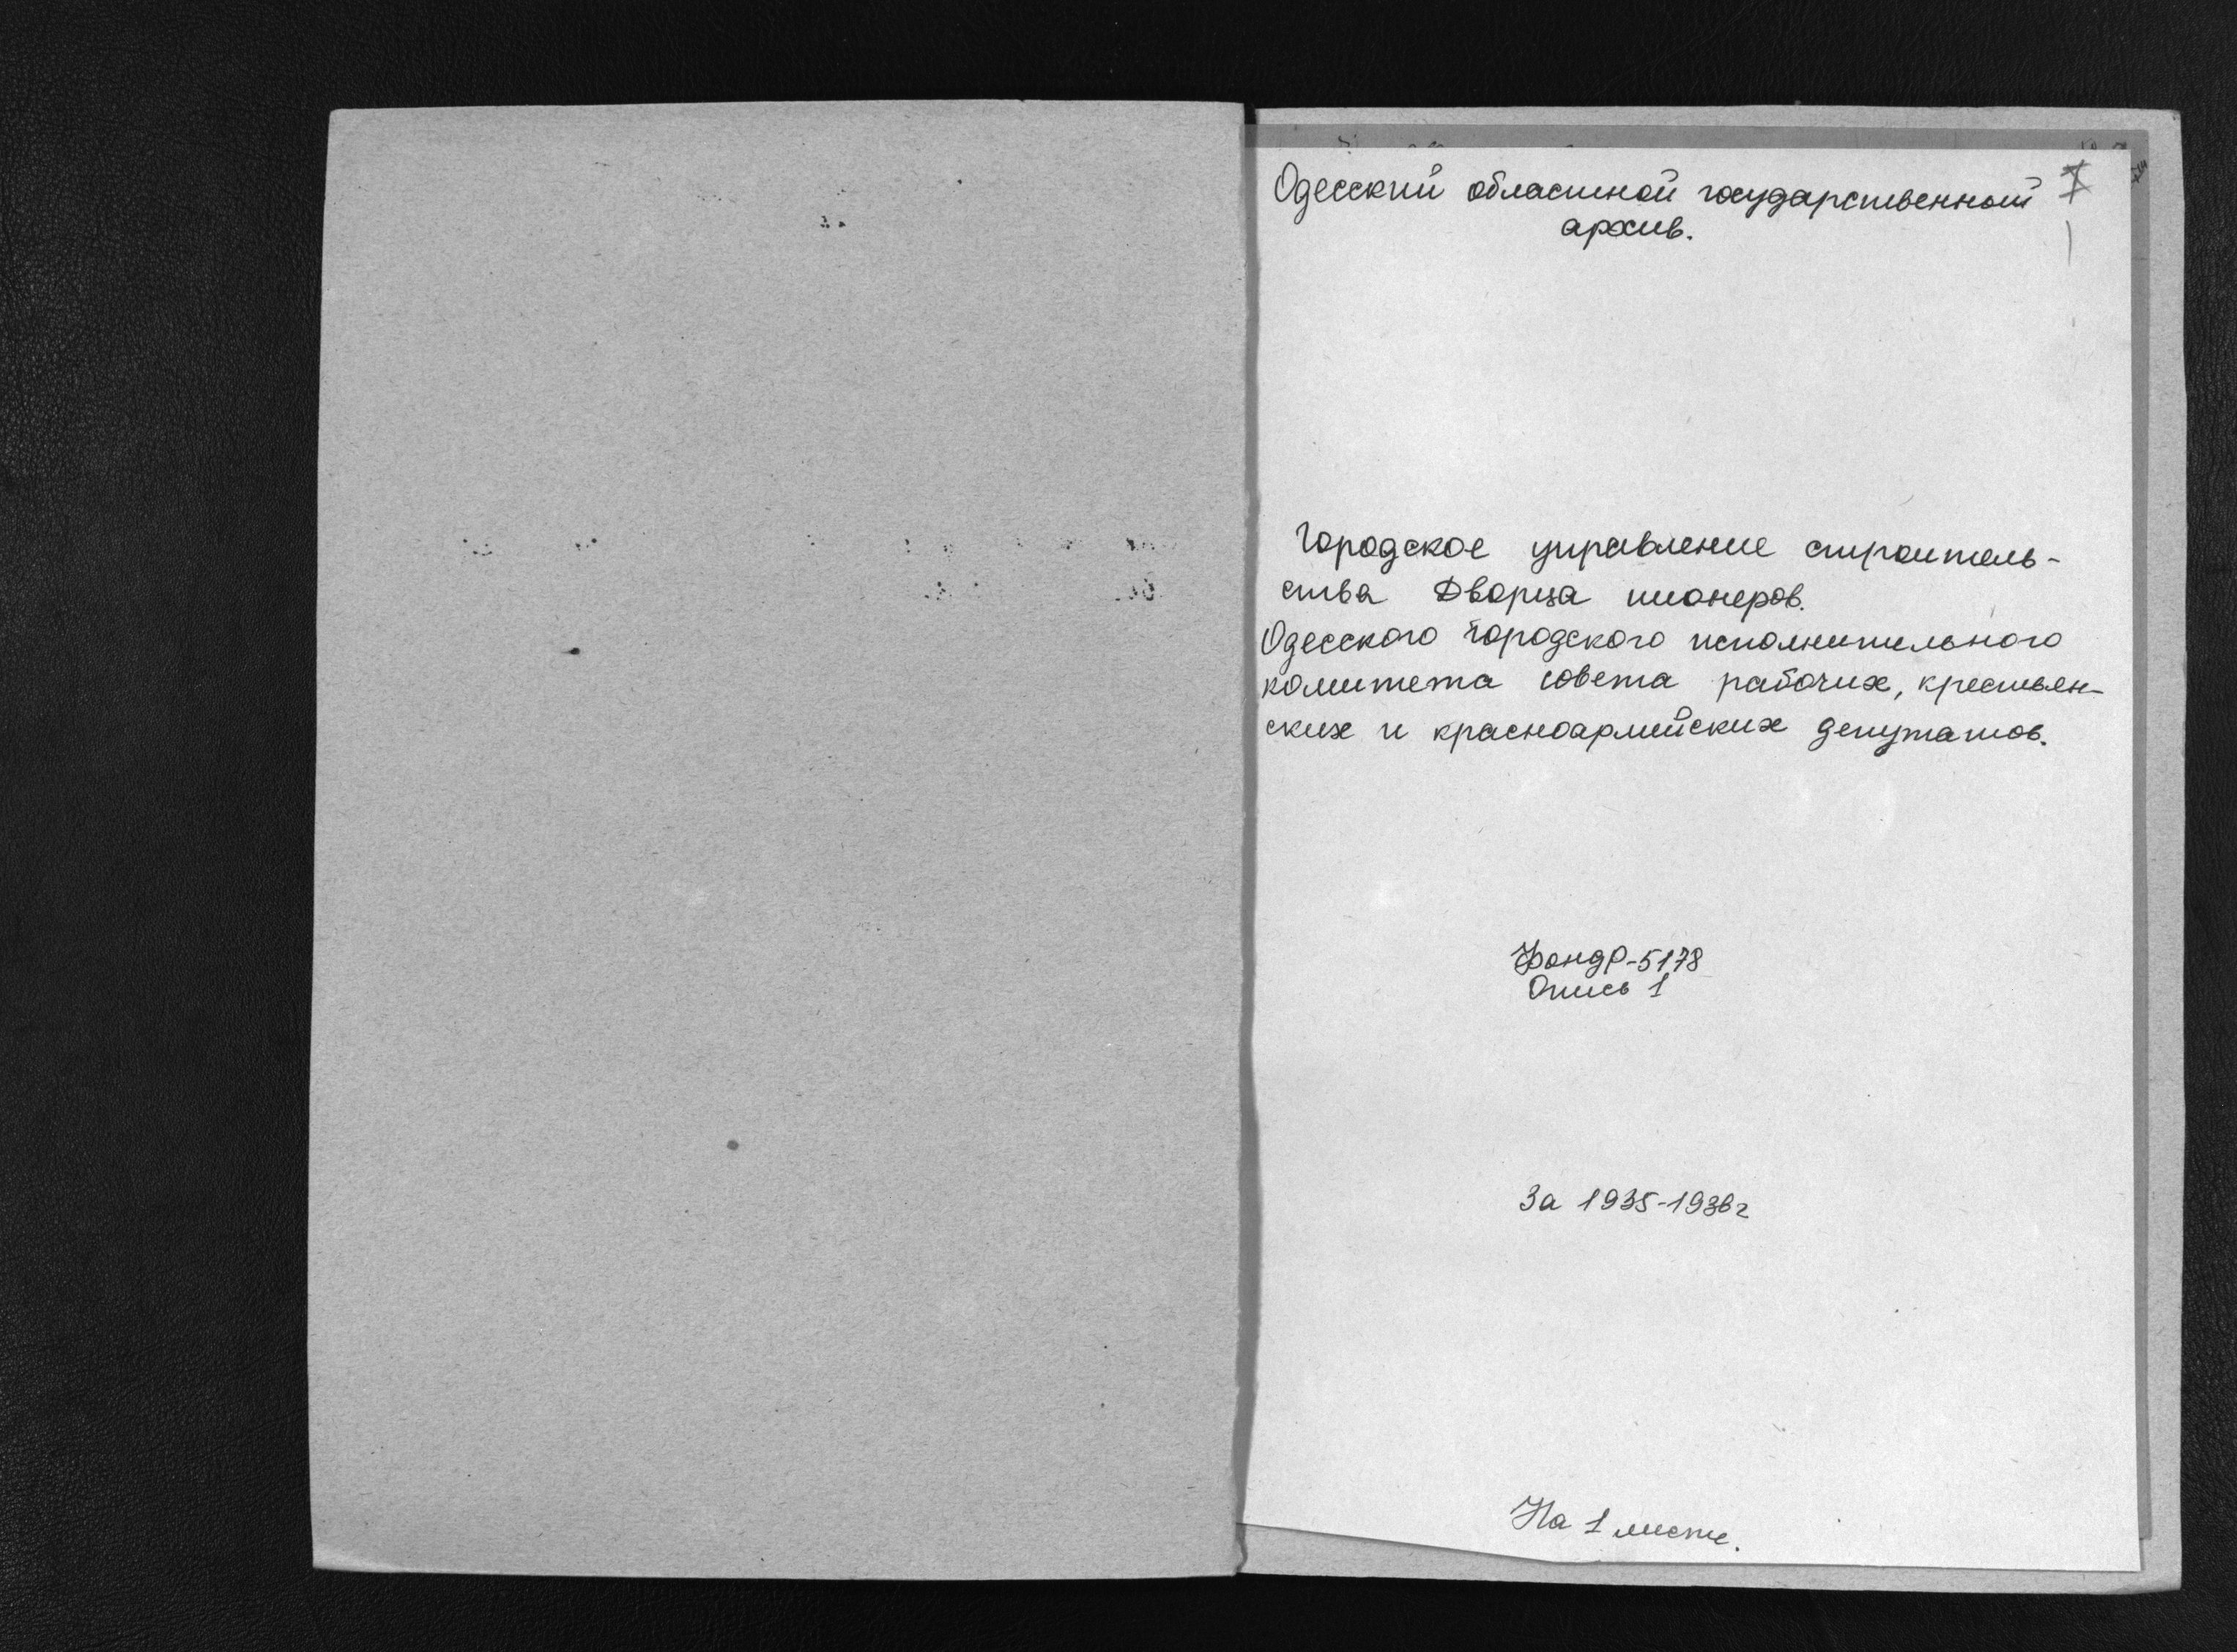 Одесский областной государственный
архив.
Городское управление строитель-
ства Дворца пионеров.
Одесского городского исполнительного
комитета совета рабочих, крестьян-
ских и красноармейских депутатов.
Фонд Р-5178
Опись 1
За 1935-1936г
На 1 листе.